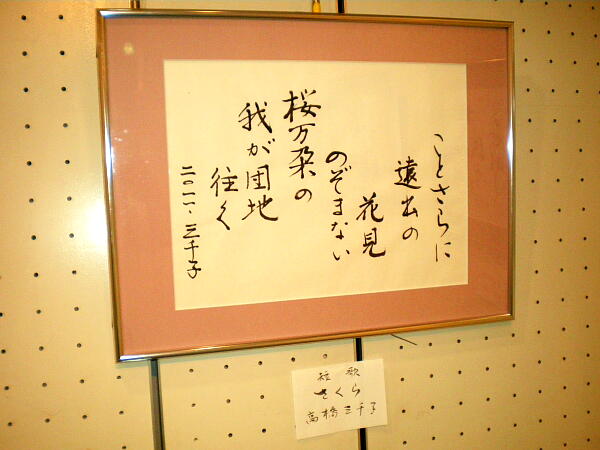 ことさらに
遠出の
花見
のぞまない
桜万朶の
我が団地
往く
二〇一一、三千子
短歌
さくら
高橋三千子